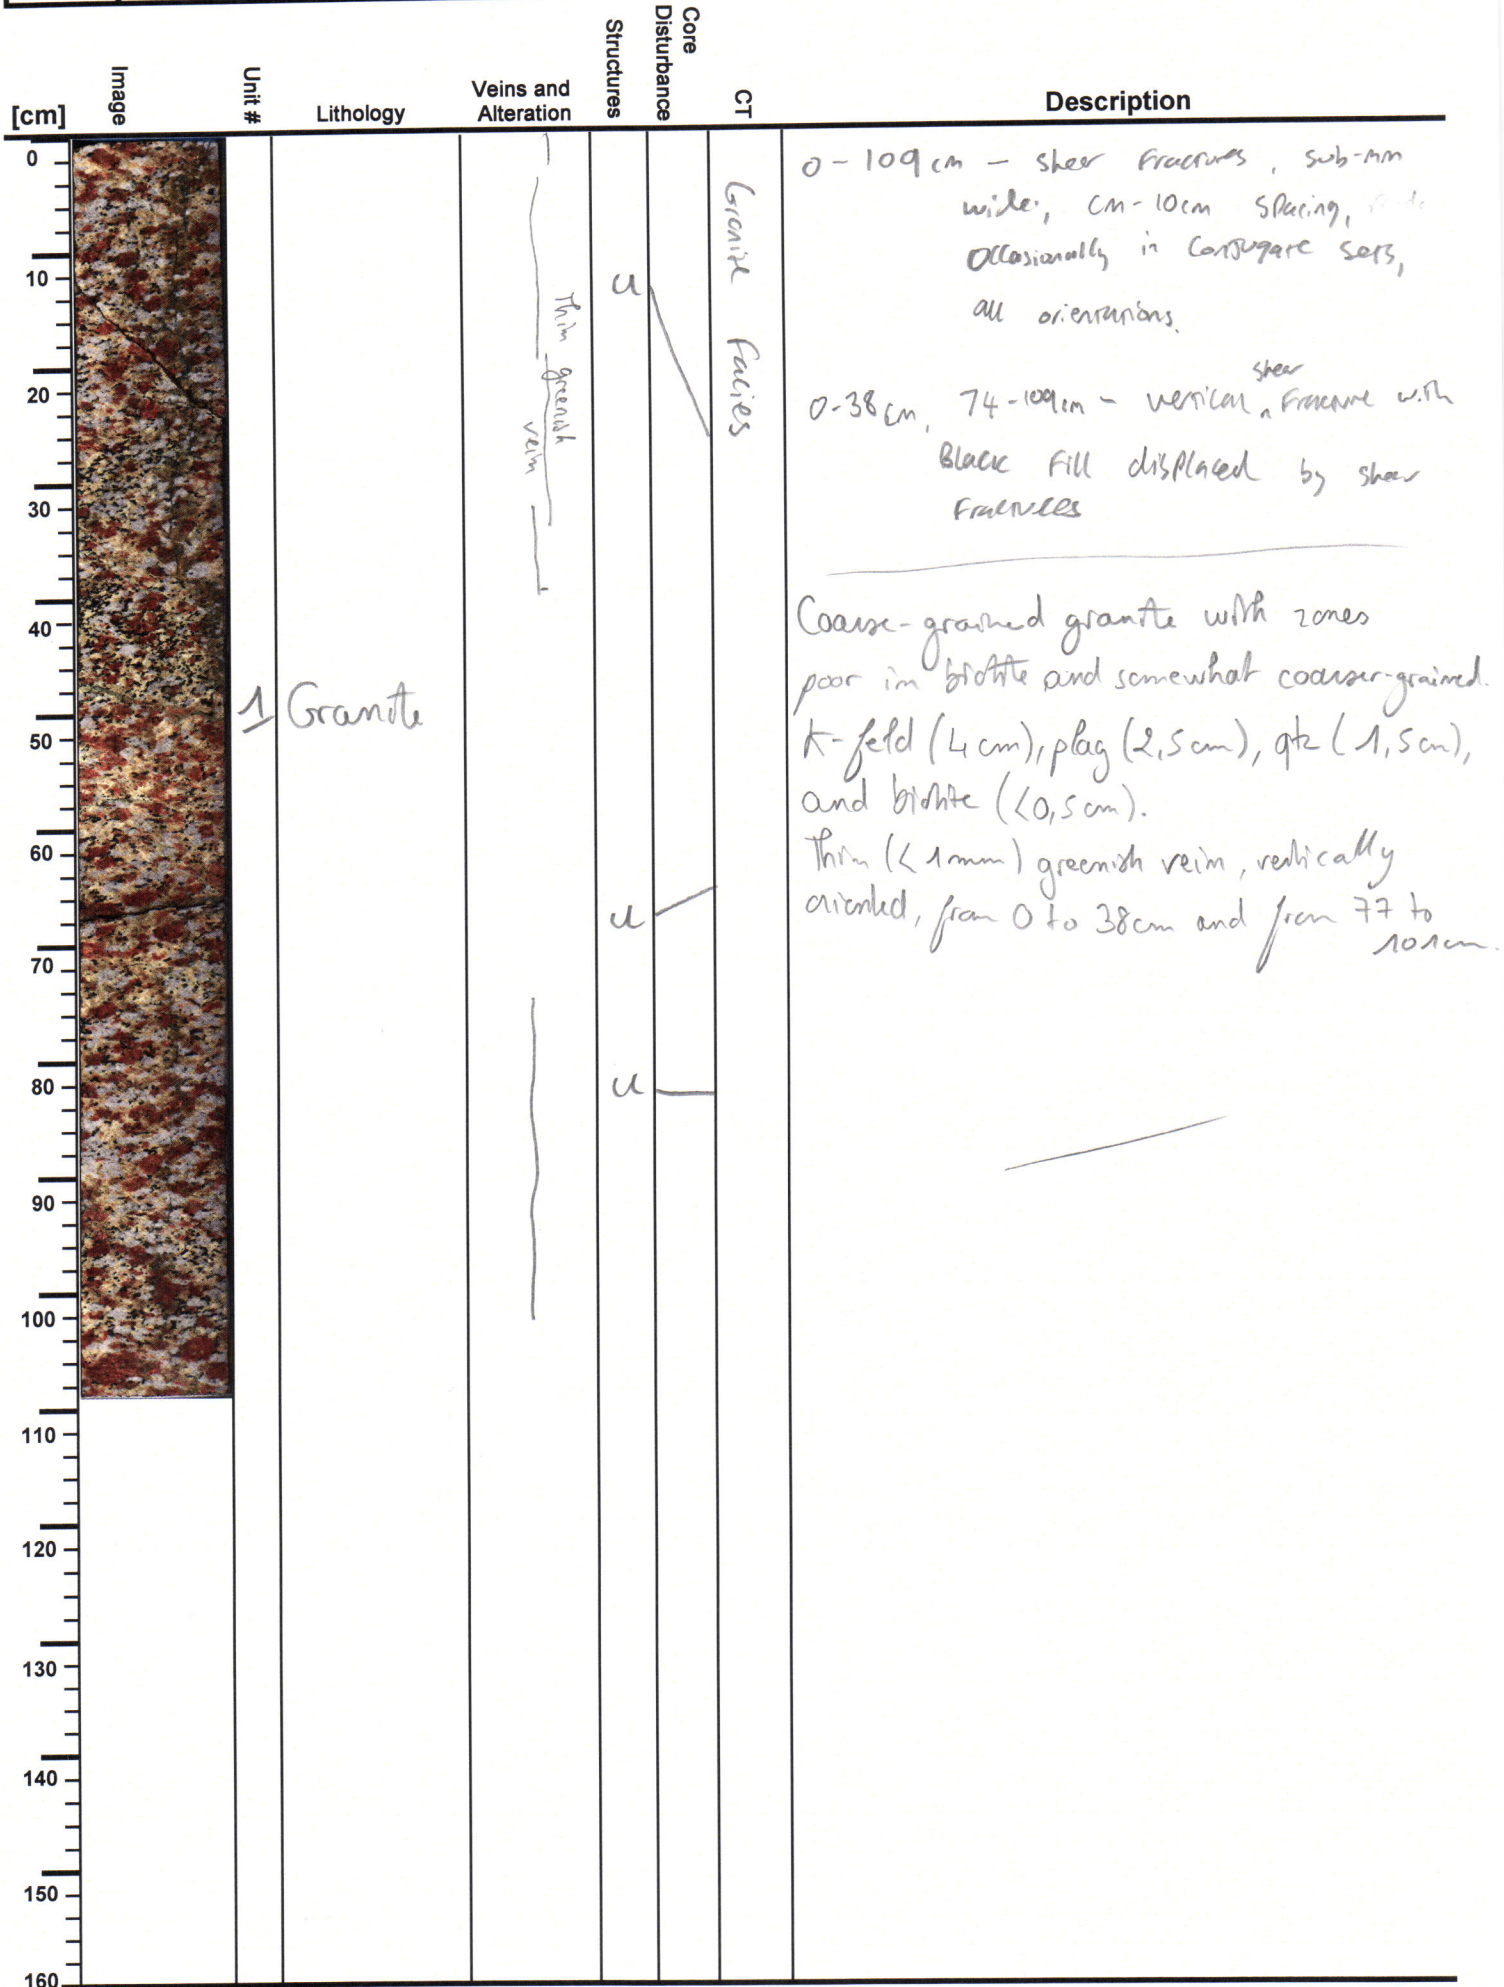 [cm]
Image
Unit #
Lithology
Veins and
Alteration
Structures
Core
Disturbance
CT
Description
0
10
20
30
40
50
60
70
80
90
100
110
120
130
140
150
160
1
Granite
Thin greenish
vein
U
U
U
Granite Facies
0-109 cm - shear Fractures, sub-mm
wide, cm-10cm spacing,
Occasionally in Conjugate sets,
all orientations.
shear
0-38 cm, 74-109cm - vertical ^ Fracture with
Black Fill displaced by shear
Fractures
Coarse-grained granite with zones
poor in biotite and somewhat coarser-grained.
K-feld (4 cm), plag (2,5 cm), qtz (1,5 cm),
and biotite (<0,5 cm).
Thin (<1mm) greenish vein, vertically
oriented, from 0 to 38cm and from 77 to
101cm.